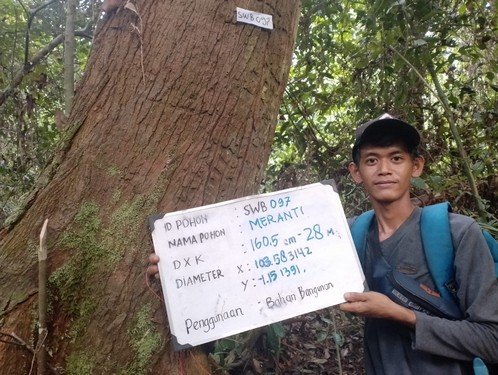 SWB 097
ID POHON : SWB 097
NAMA POHON : MERANTI
D X K : 160.5 cm - 28 M
DIAMETER X : 103.583142
Y : -1.151391,
Penggunaan : Bahan Bangunan